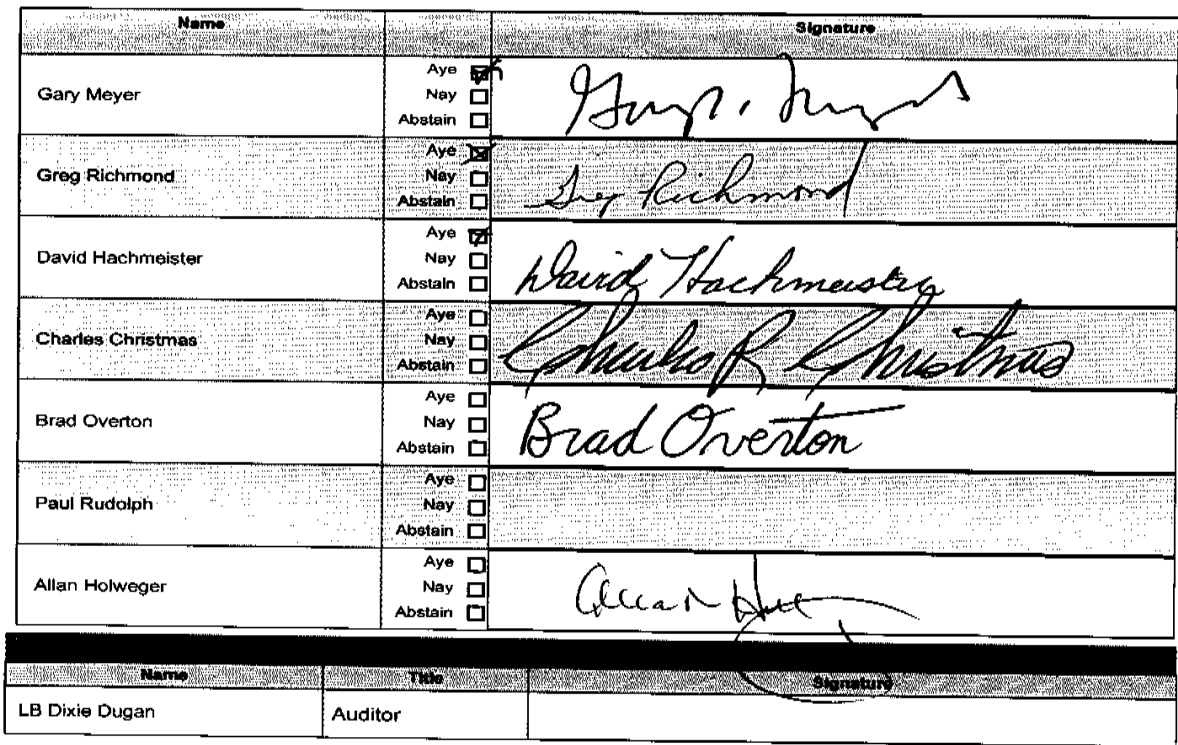 Name Signature
Gary Meyer
Aye
Nay
Abstain
Greg Richmond
Aye
Nay
Abstain
Greg Richmond
David Hachmeister
Aye
Nay
Abstain
David Hachmeister
Charles Christmas
Aye
Nay
Abstain
Charles R Christmas
Brad Overton
Aye
Nay
Abstain
Brad Overton
Paul Rudolph
Aye
Nay
Abstain
Allan Holweger
Aye
Nay
Abstain
Name Title Signature
LB Dixie Dugan Auditor